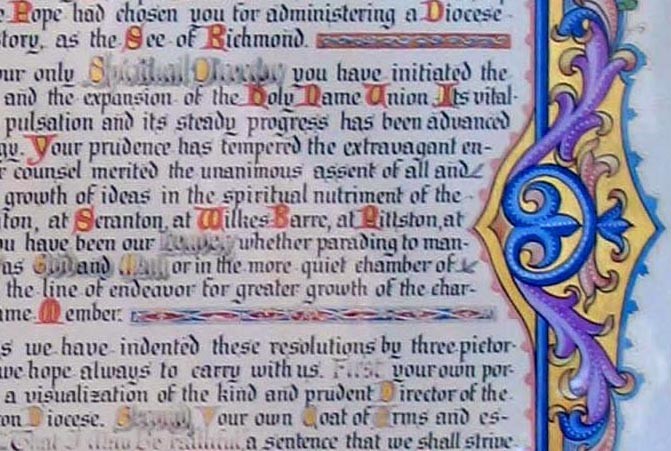 Pope had chosen you for administering a Diocese
story, as the See of Richmond.
our only Spiritual Director you have initiated the
and the expansion of the Holy Name Union. Its vital-
pulsation and its steady progress has been advanced
gy. Your prudence has tempered the extravagant en-
r counsel merited the unanimous assent of all and
growth of ideas in the spiritual nutriment of the
ton, at Scranton, at Wilkes-Barre, at Pittston, at
ou have been our whether parading to man-
as and or in the more quiet chamber of
the line of endeavor for greater growth of the char-
ame Member.
s we have indented these resolutions by three pictor-
we hope always to carry with us. First your own por-
a visualization of the kind and prudent Director of the
on Diocese. Second, Your own Coat of Arms and es-
That I may be faithful, a sentence that we shall strive